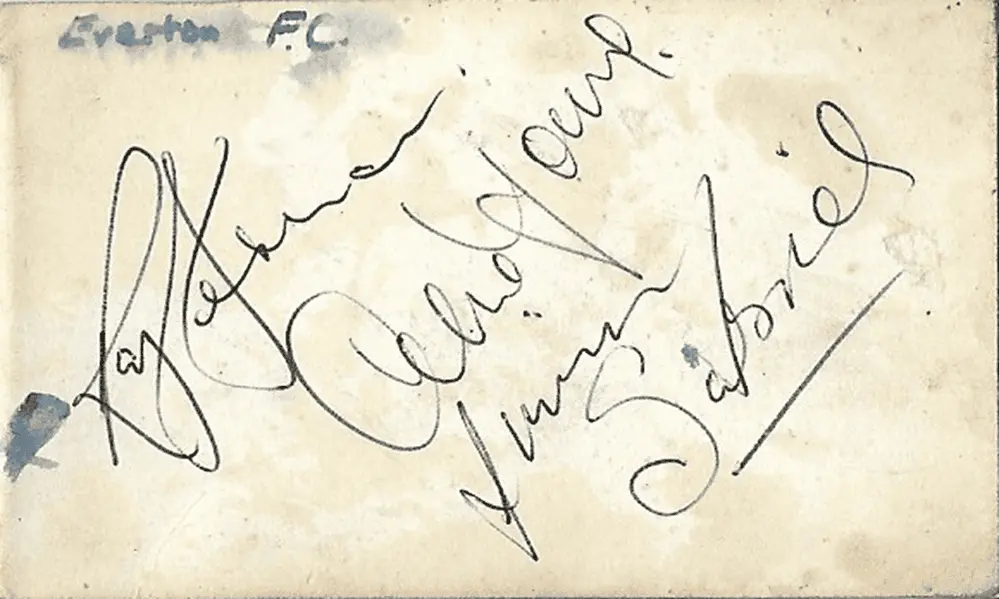 Everton F.C.
Roy Vernon
Alex Young.
Jimmy Gabriel